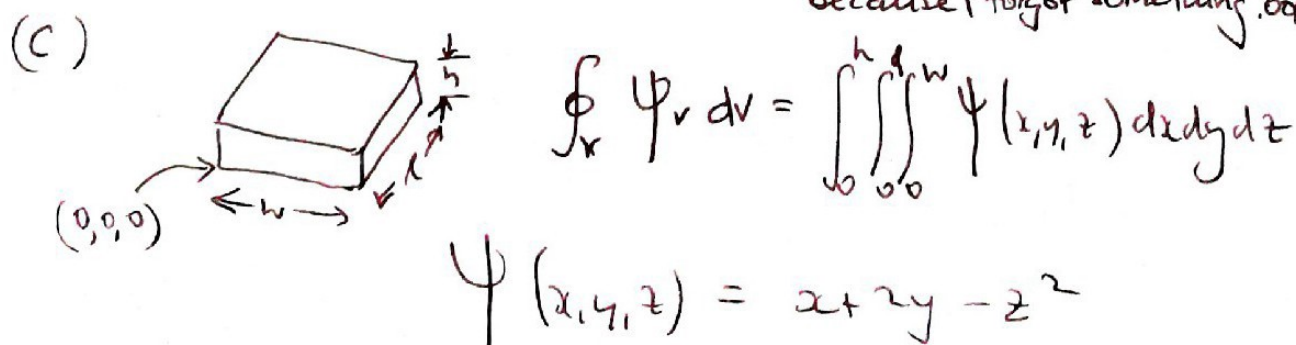 because I forgot something.
(C)
h
l
w
(0,0,0)
∮_v ψ_v dv = ∫_0^h ∫_0^l ∫_0^w ψ(x,y,z) dx dy dz
ψ(x,y,z) = x + 2y - z^2